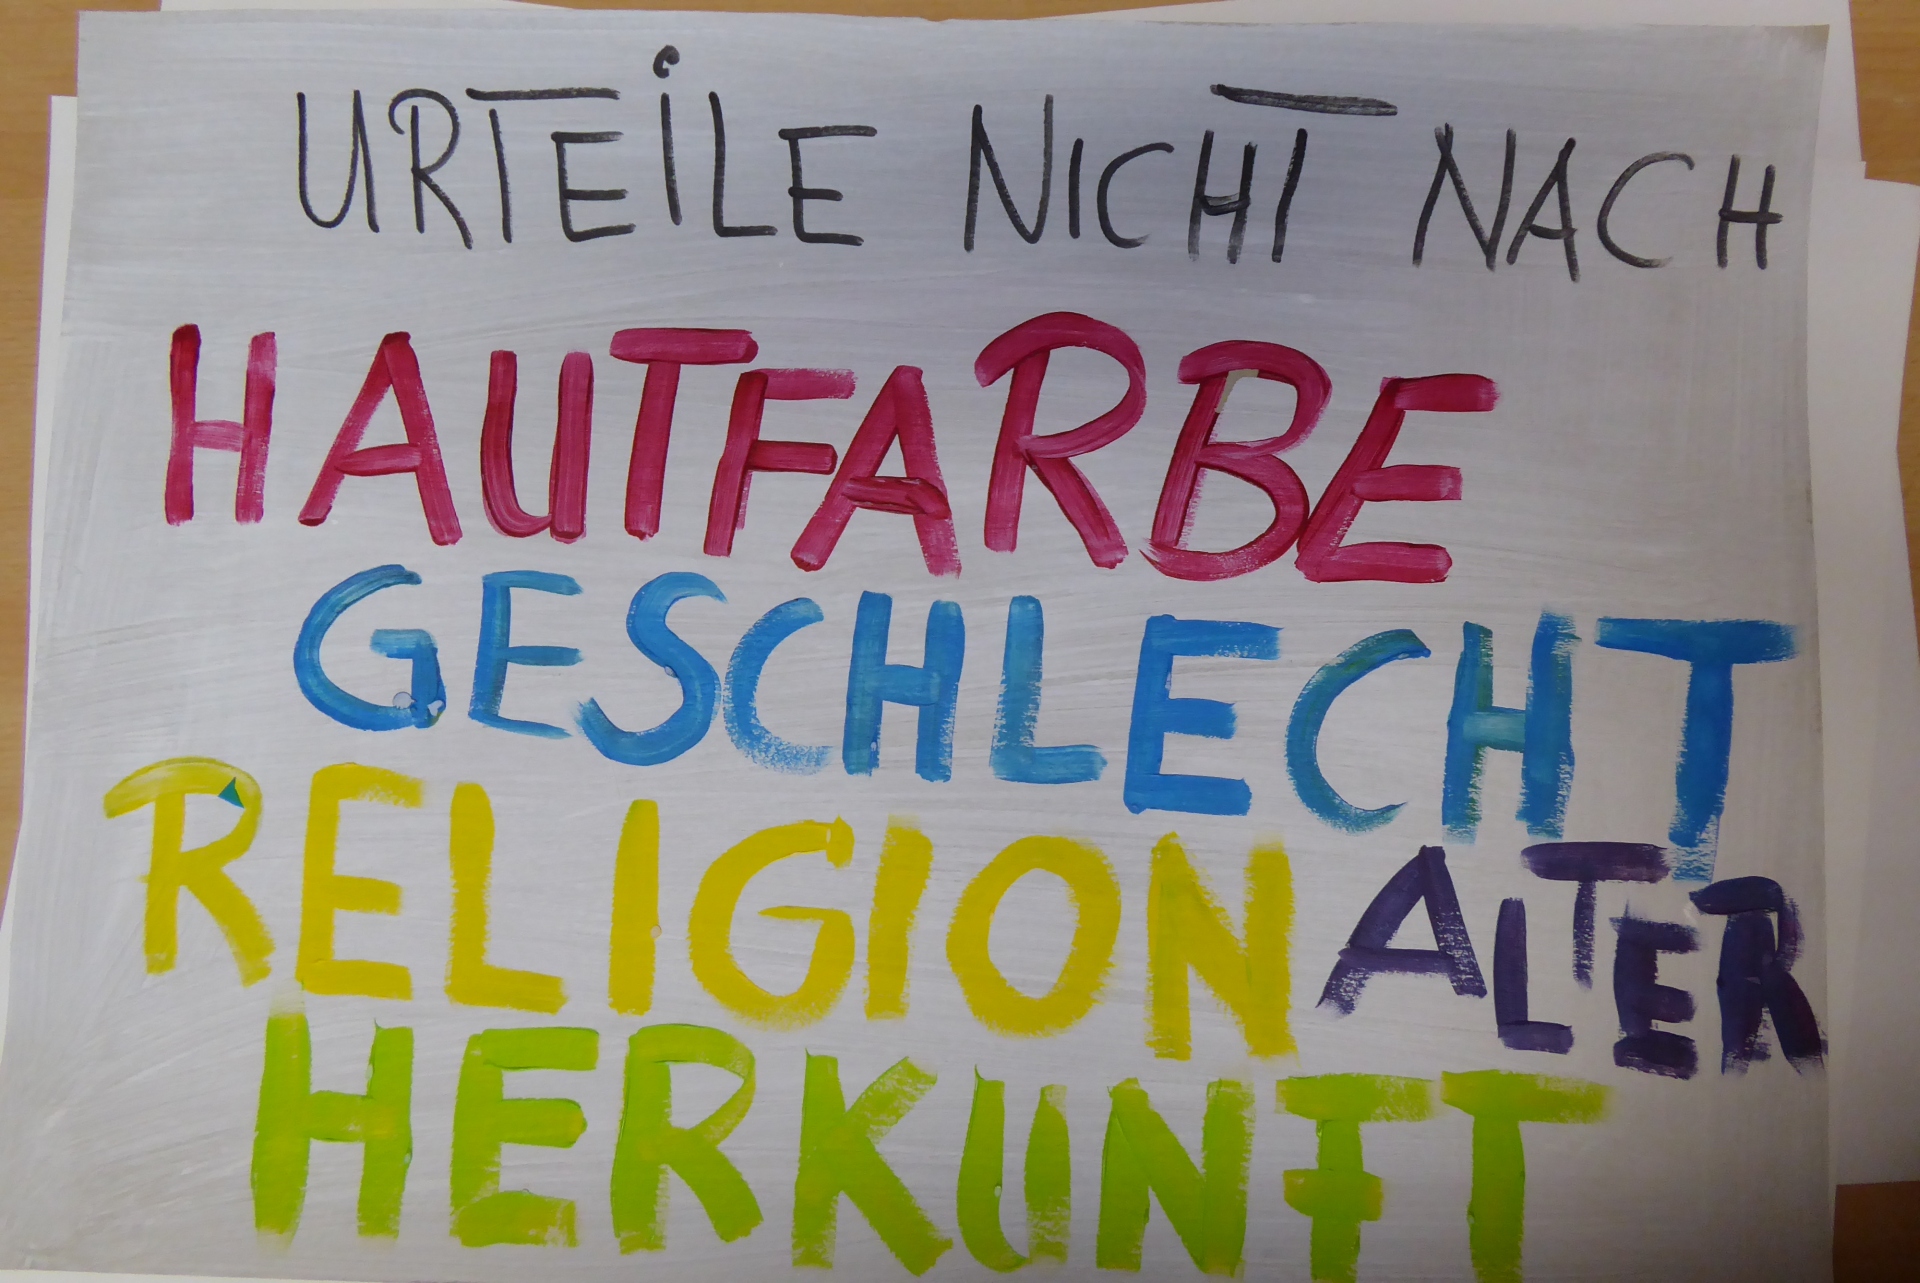 URTEILE NICHT NACH
HAUTFARBE
GESCHLECHT
RELIGION ALTER
HERKUNFT